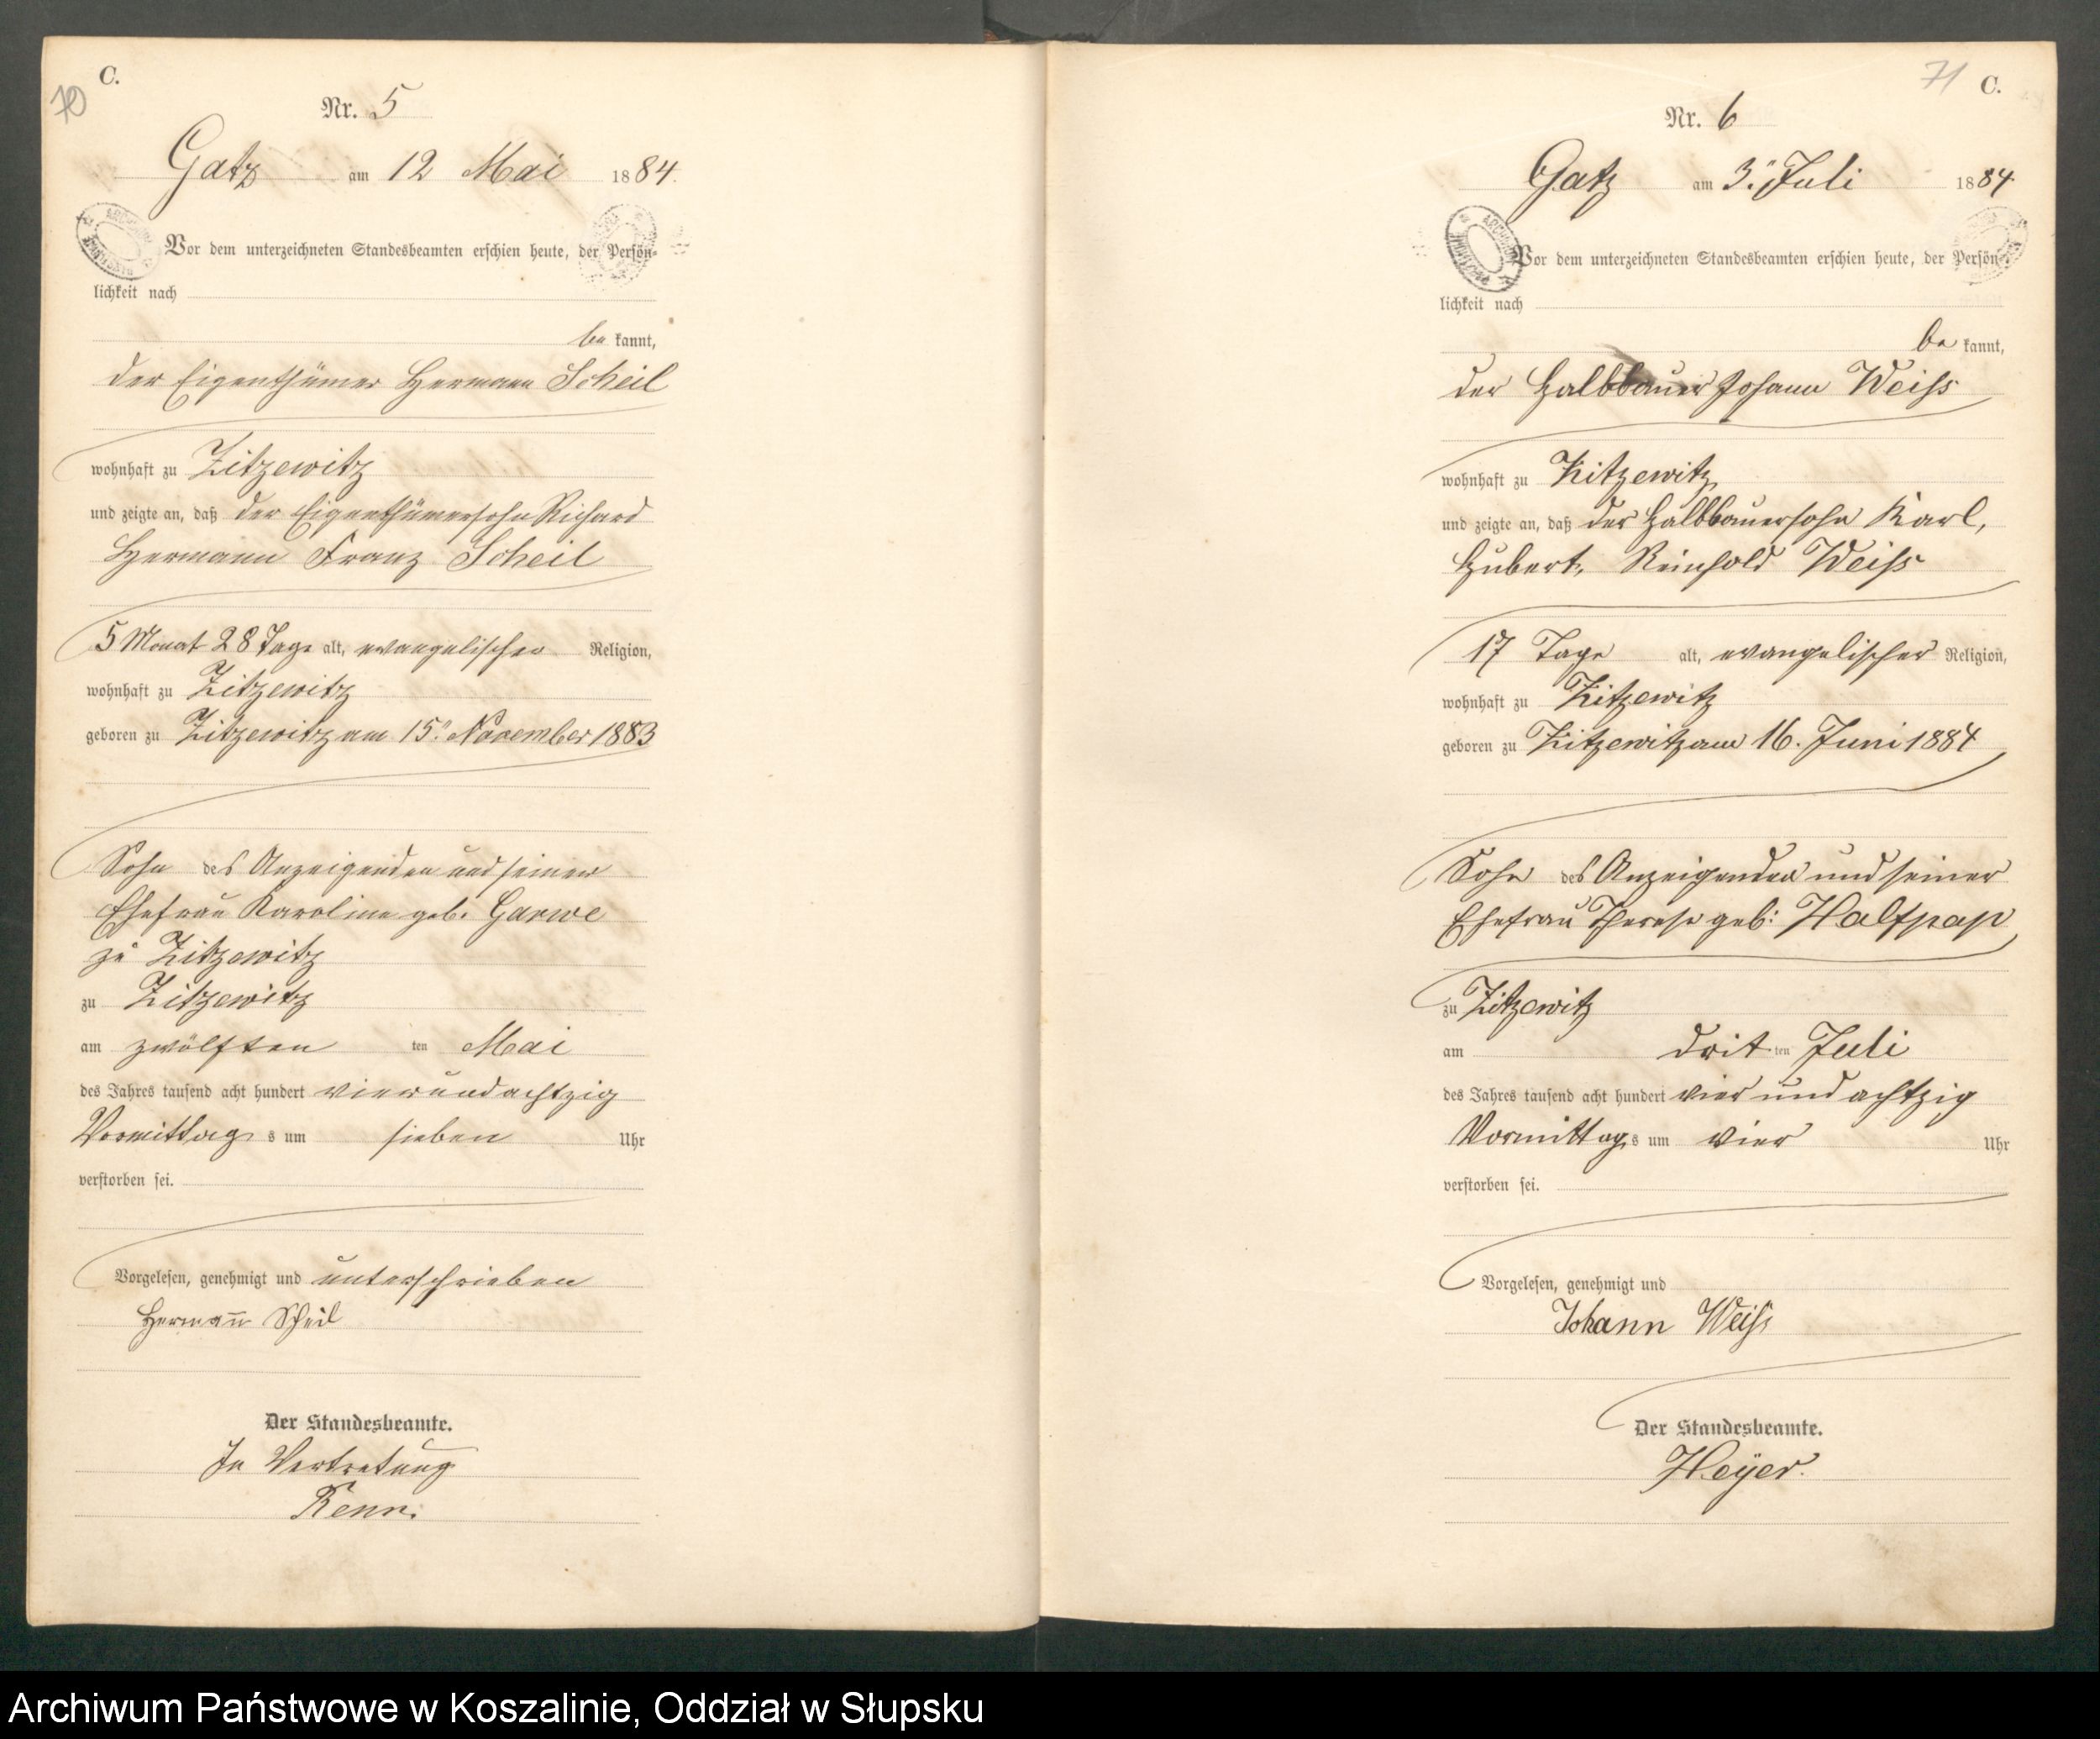 C.
70
Nr. 5
Gatz am 12 Mai 1884.
Vor dem unterzeichneten Standesbeamten erschien heute, der Persön-
lichkeit nach
be kannt,
der Eigenthümer Hermann Scheil
wohnhaft zu Zitzewitz
und zeigte an, daß der Eigenthümersohn Richard
Hermann Franz Scheil
5 Monat 28 Tage alt, evangelischer Religion,
wohnhaft zu Zitzewitz
geboren zu Zitzewitz am 15. November 1883
Sohn des Anzeigenden und seiner
Ehefrau Karoline geb. Garwe
zu Zitzewitz
zu Zitzewitz
am zwölften ten Mai
des Jahres tausend acht hundert vierundachtzig
Vormittag s um sieben Uhr
verstorben sei.
Vorgelesen, genehmigt und unterschrieben
Hermann Scheil
Der Standesbeamte.
In Vertretung
71
C.
Nr. 6
Gatz am 3. Juli 1884.
Vor dem unterzeichneten Standesbeamten erschien heute, der Persön-
lichkeit nach
be kannt,
der Halbbauer Johann Weiß
wohnhaft zu Zitzewitz
und zeigte an, daß der Halbbauersohn Karl,
Hubert, Reinhold Weiß
17 Tage alt, evangelischer Religion,
wohnhaft zu Zitzewitz
geboren zu Zitzewitz am 16. Juni 1884
Sohn des Anzeigenden und seiner
Ehefrau Therese geb: Halfpap
zu Zitzewitz
am drit ten Juli
des Jahres tausend acht hundert vier und achtzig
Vormittag s um vier Uhr
verstorben sei.
Vorgelesen, genehmigt und
Johann Weiß
Der Standesbeamte.
Heyer.
Archiwum Państwowe w Koszalinie, Oddział w Słupsku